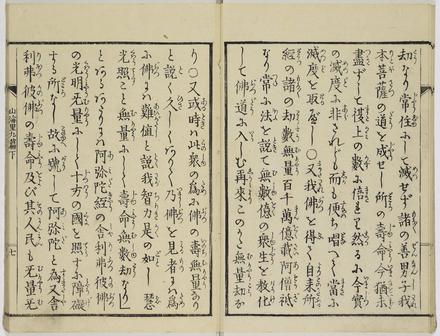 却なり常住にして滅せず諸の善男子我
本菩薩の道を成せし所の壽命今猶未
盡ずして復上の數に倍せり然るに今實
の滅度に非されども而も便ち唱へて當に
滅度を取べしと○又我佛を得てより自來所
經の諸の劫數無量百千萬億載阿僧祇
なり常に法を說て無數億の衆生を教化
して佛道に入しむ爾來このかた無量劫な
り○又或時は此衆の爲に佛の壽無量なり
と說く久しくあつて乃佛を見者には爲
に佛には難値と說我智力是の如し慧
光照こと無量にして壽命無數劫なり
とあるあるは阿弥陀経の舎利弗彼佛
の光明無量にして十方の國を照すに障礙
する所なし故に號して阿弥陀と為又舎
利弗彼佛の壽命及び其人民も無量无
七